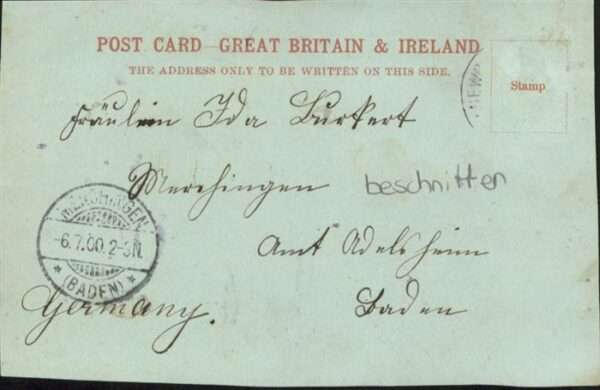 POST CARD GREAT BRITAIN & IRELAND
THE ADDRESS ONLY TO BE WRITTEN ON THIS SIDE.
Stamp
Fräulein Ida Burkert
Merchingen
beschnitten
MERCHINGEN
-6.7.00.2-3N.
* (BADEN) *
Amt Adelsheim
Germany.
Baden